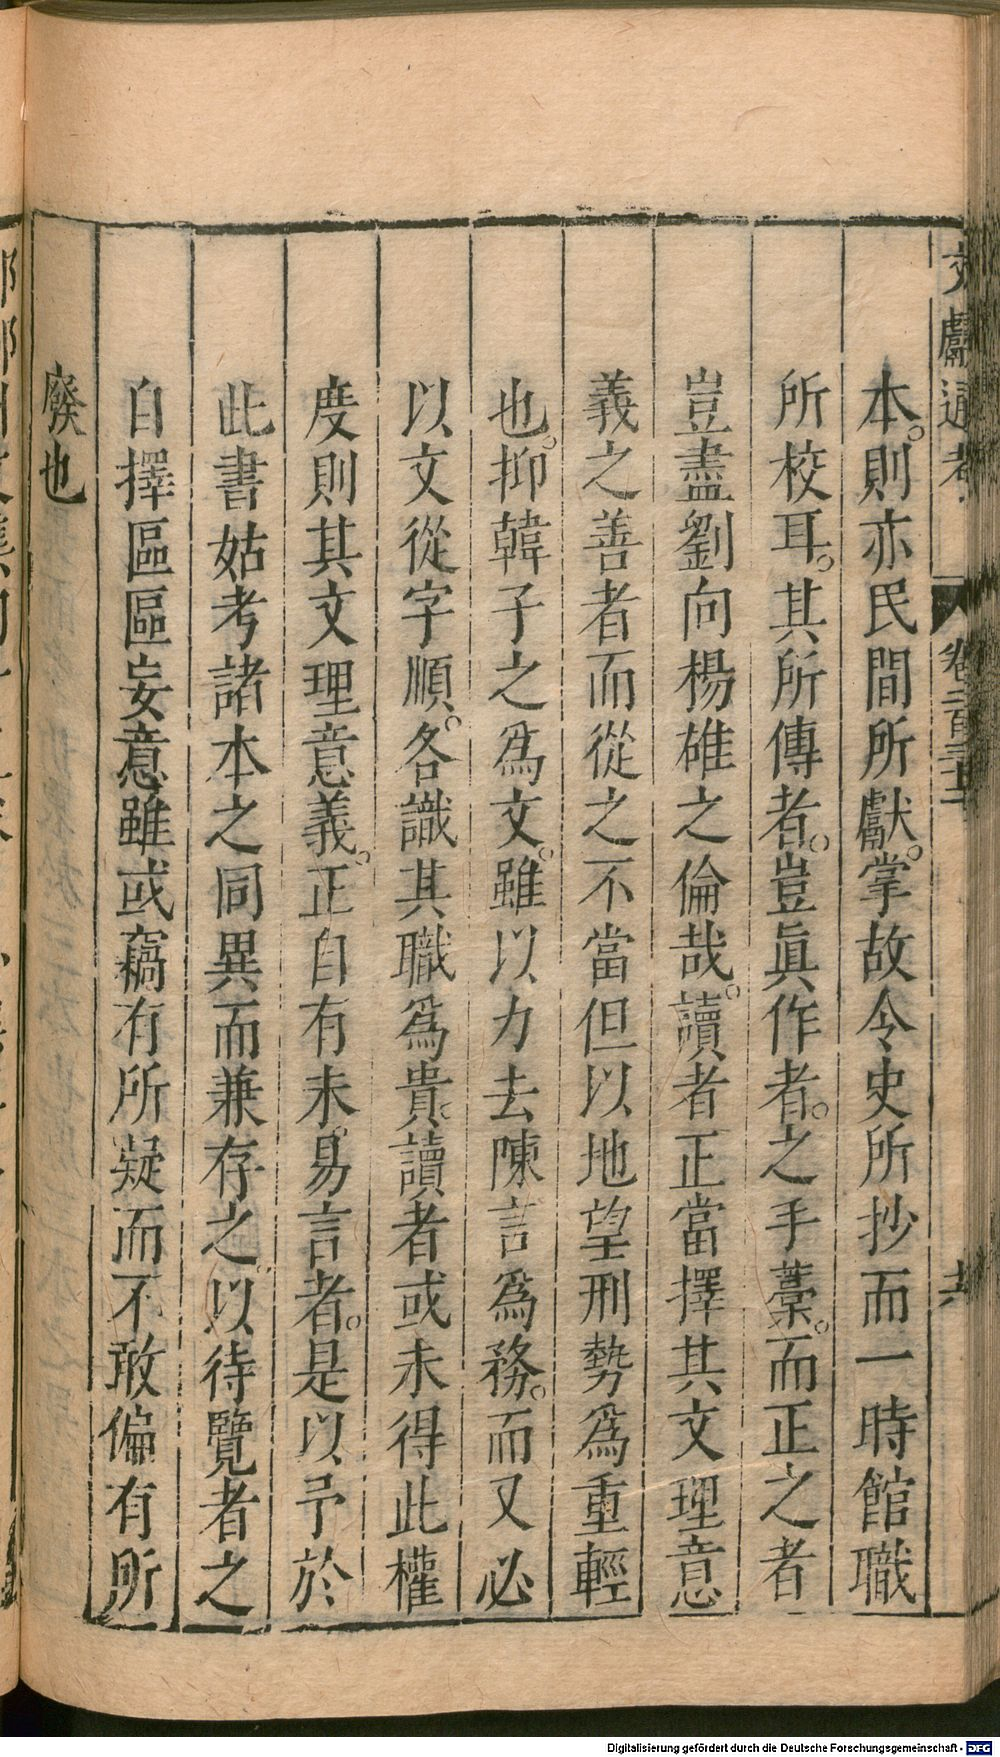 文獻通考 卷二百三十二
本則亦民間所獻掌故令史所抄而一時館職
所校耳其所傳者豈眞作者之手藁而正之者
豈盡劉向楊雄之倫哉讀者正當擇其文理意
義之善者而從之不當但以地望刑勢爲重輕
也抑韓子之爲文雖以力去陳言爲務而又必
以文從字順各識其職爲貴讀者或未得此權
度則其文理意義正自有未易言者是以予於
此書姑考諸本之同異而兼存之以待覽者之
自擇區區妄意雖或竊有所疑而不敢偏有所
廢也
Digitalisierung gefördert durch die Deutsche Forschungsgemeinschaft - DFG